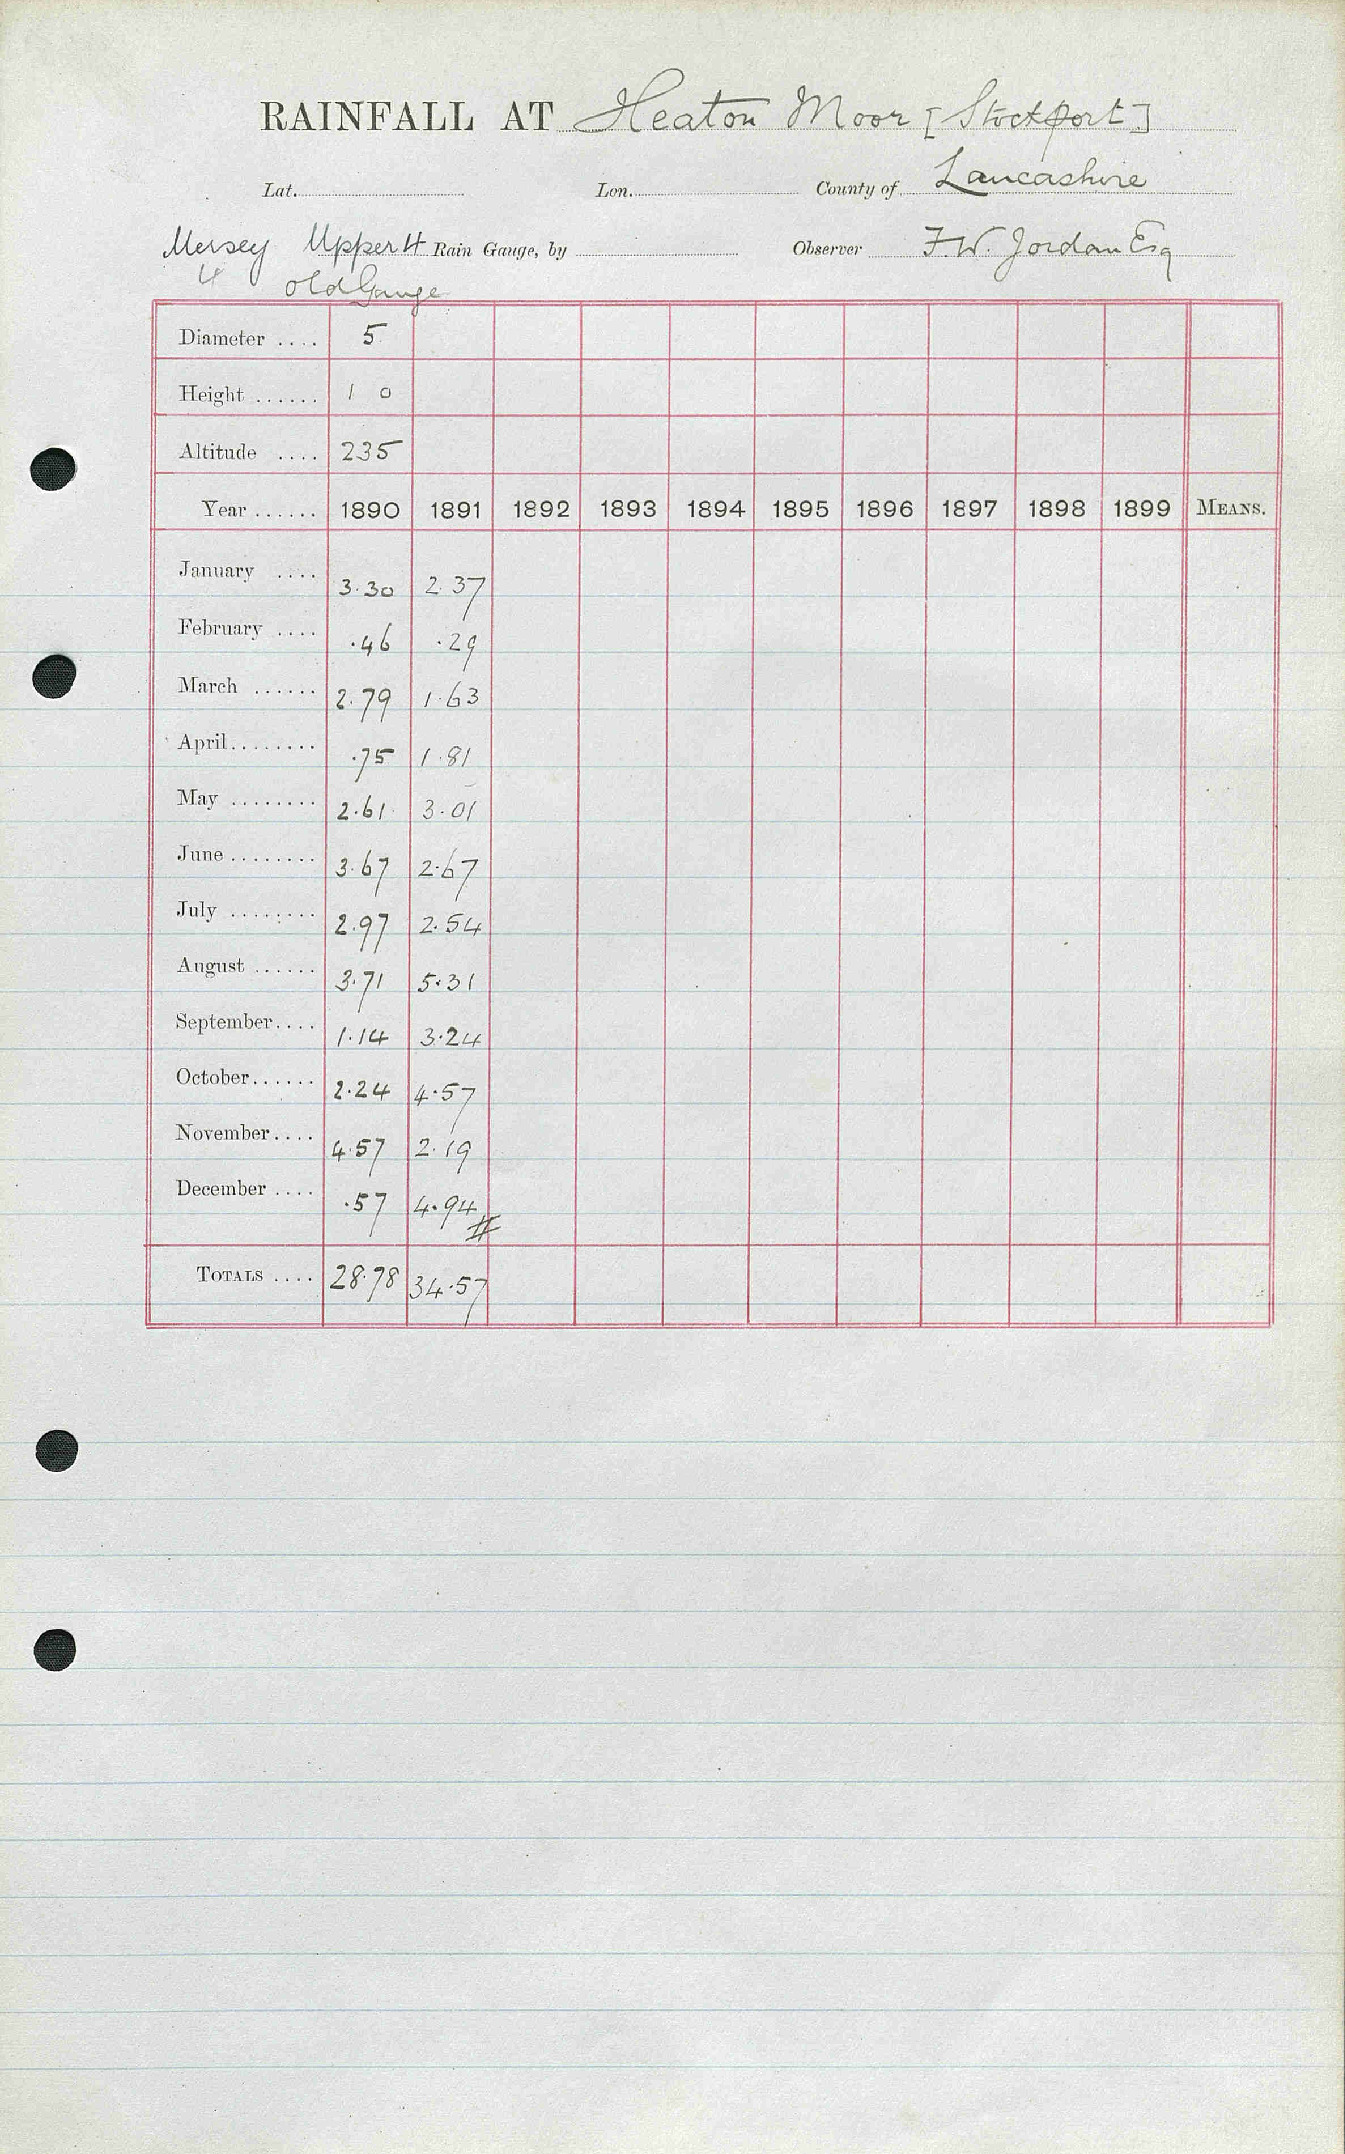 RAINFALL AT Heaton Moor [Stockport]
Lat. Lon. County of Lancashire
Mersey Upper 4 Rain Gauge, by Observer F.W. Jordan Esq
4 old Gauge
Diameter .... 5
Height ...... 1 0
Altitude .... 235
Year ...... 1890 1891 1892 1893 1894 1895 1896 1897 1898 1899 MEANS.
January .... 3.30 2.37
February .... .46 .29
March ...... 2.79 1.63
April ........ .75 1.81
May ........ 2.61 3.01
June ........ 3.67 2.67
July ........ 2.97 2.54
August ...... 3.71 5.31
September .... 1.14 3.24
October ...... 2.24 4.57
November .... 4.57 2.19
December .... .57 4.94 #
TOTALS .... 28.78 34.57